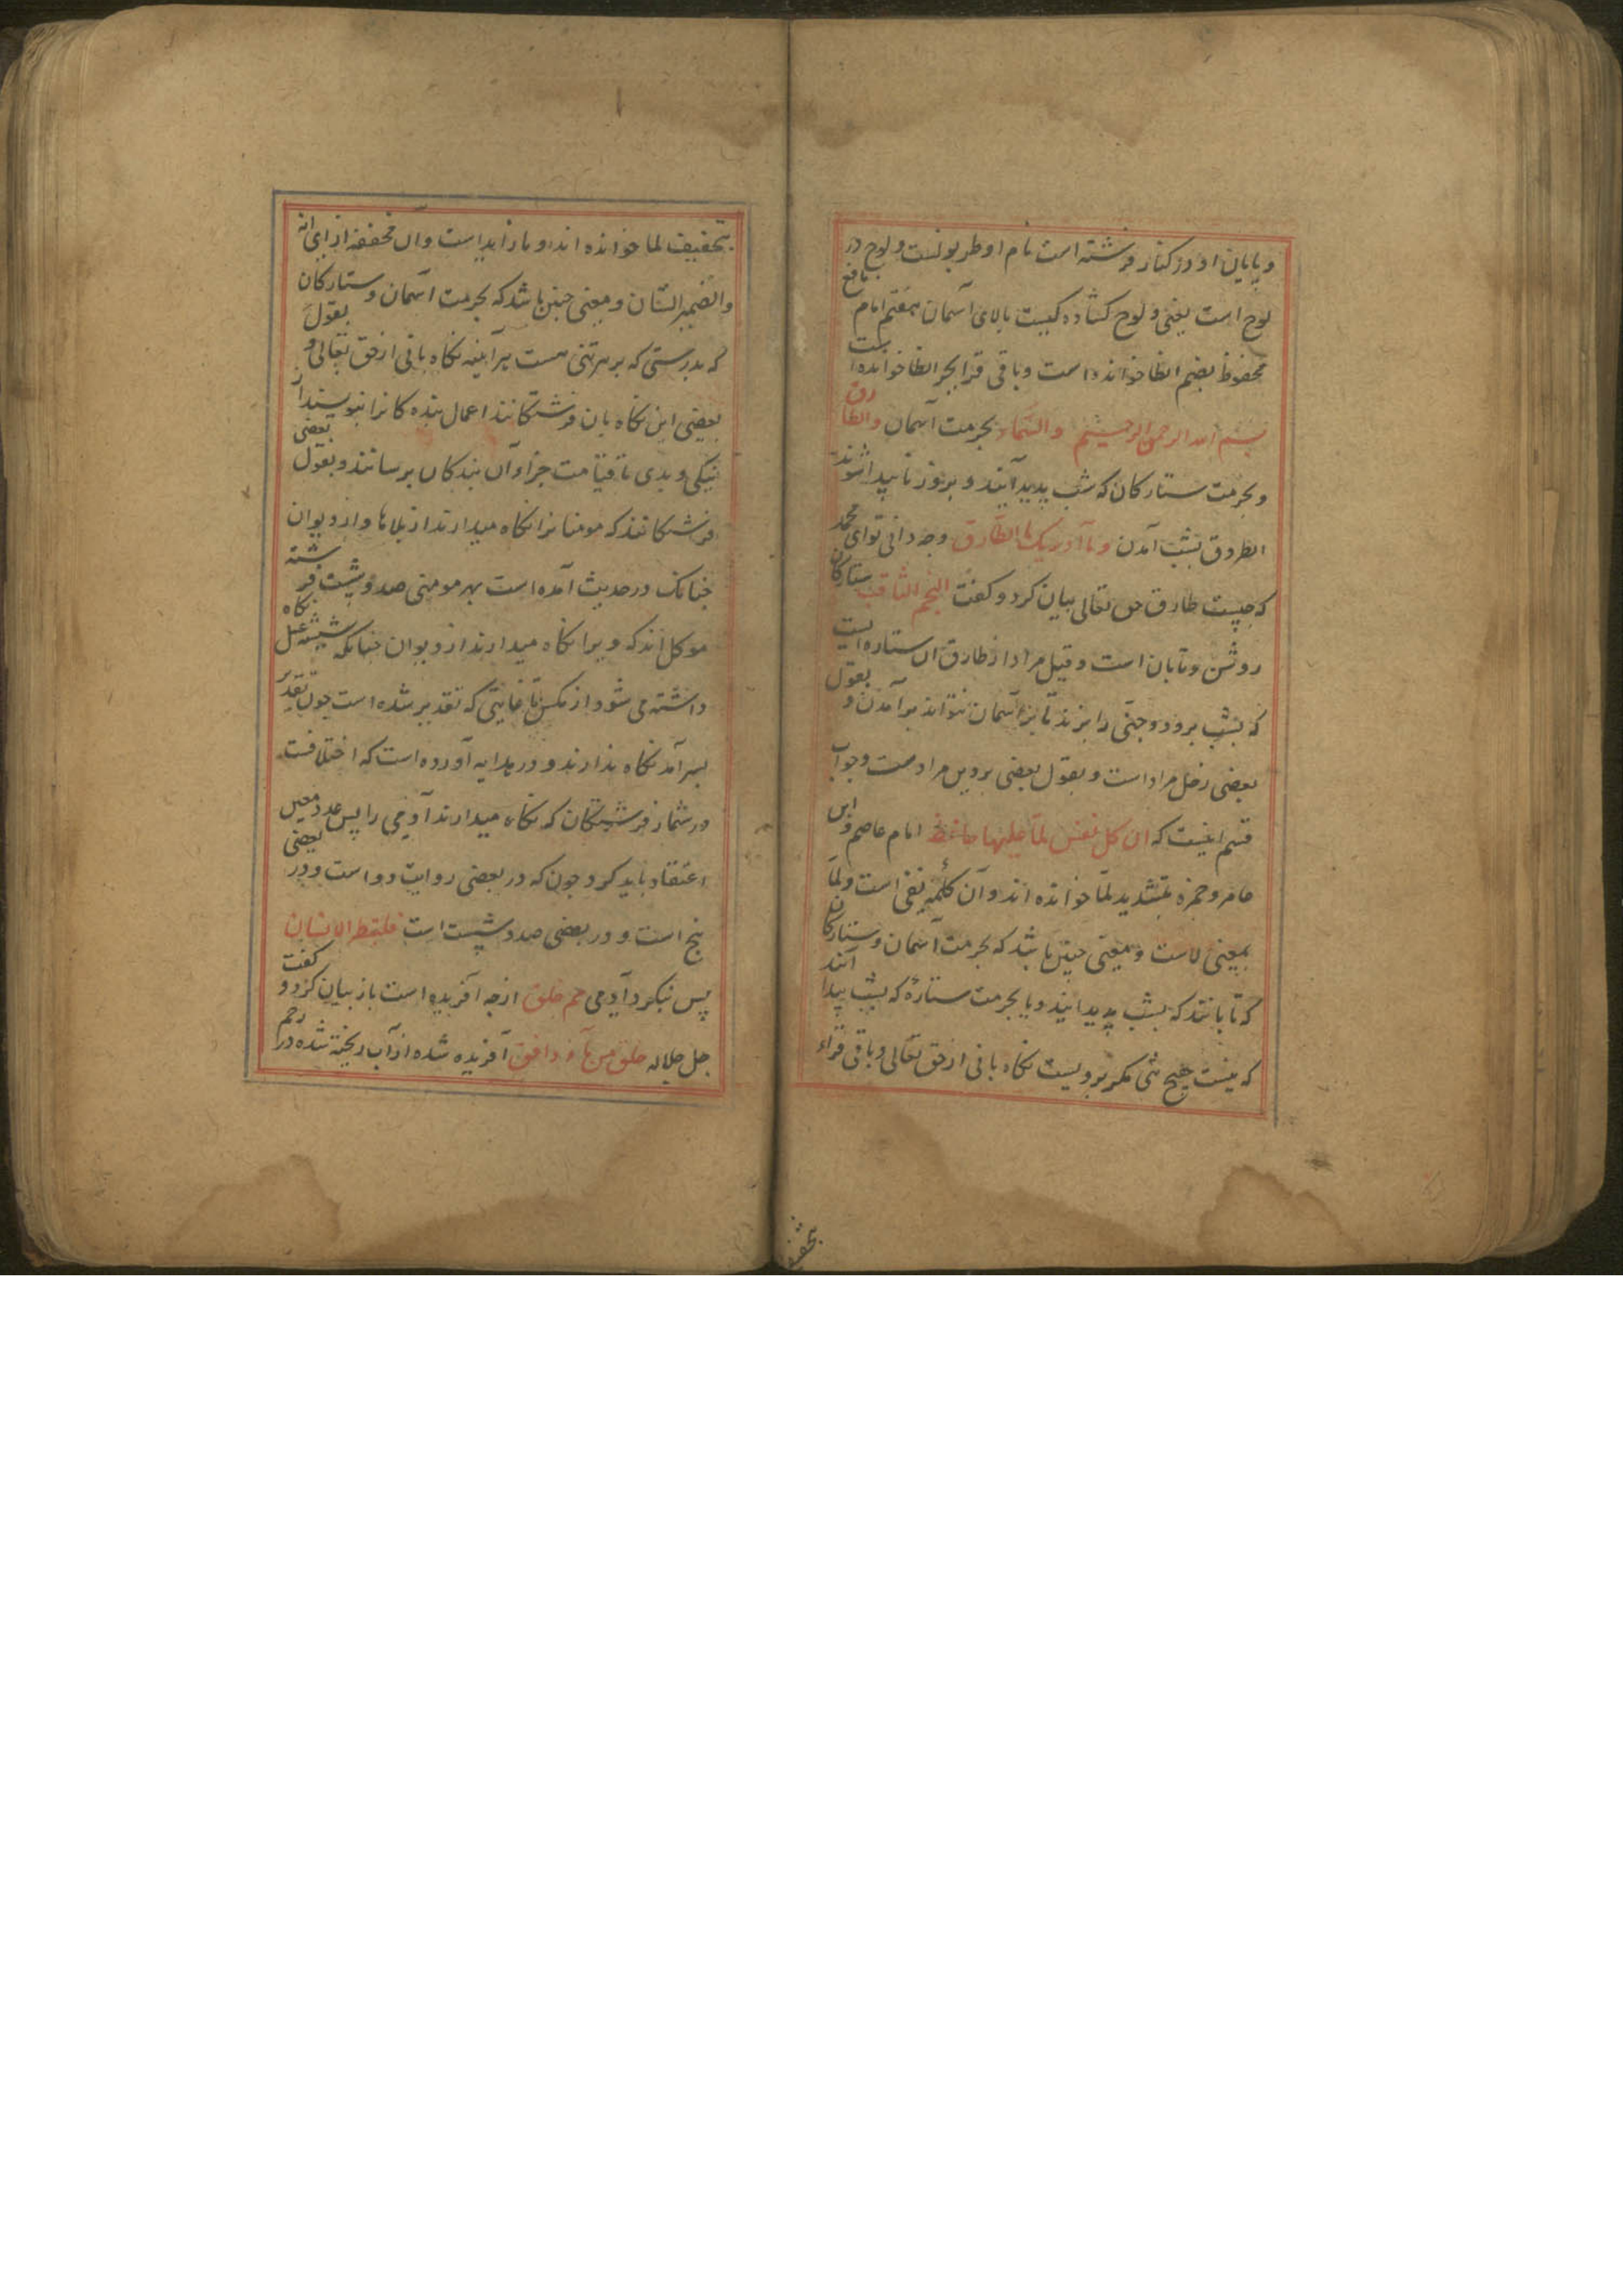 و پایان او در کنار فرشته است نام او طربولست و لوح در
لوح است یعنی و لوح کشاده کیست بالای آسمان هفتم امام نافع
محفوظ بضم الظا خوانده است و باقی قرا بجر الظا خوانده است
بسم الله الرحمن الرحیم والسماء بحرمت آسمان والطارق
و بحرمت ستارکان که شب پدید آیند و بروز ناپیدا شوند
الطروق بشب آمدن وما ادریک ما الطارق وجه دانی تو ای محمد
که چیست طارق حق تعالی بیان کرد و کفت النجم الثاقب ستارکان
روشن و تابان است و قیل مراد از طارق ان ستاره ایست
که بشب برود و جنی را بزند تا بر آسمان نتواند بر آمدن و بقول
بعضی زحل مراد است و بقول بعضی پروین مراد ست و جواب
قسم اینست که ان کل نفس لما علیها حافظ امام عاصم و ابن
عامر و حمزه بتشدید لما خوانده اند و آن کلمه نفی است و لما
بمعنی الاست و معنی چنین باشد که بحرمت آسمان و ستارکان
که تابانند که بشب پدید ایند و یا بحرمت ستارهٔ که بشب پیدا آند
که نیست هیچ تنی مکر برویست نکاه بانی از حق تعالی و باقی قراء
بتحفیف لما خوانده اند و ما زاید است و ان مخففه از ای انه
والضمیر الشان و معنی چنین باشد که بحرمت آسمان و ستارکان
که بدرستی که بر هر تنی هست هر آینه نکاه بانی از حق تعالی و بقول
بعضی این نکاه بان فرشتکانند اعمال بنده کانرا نبویسند از
نیکی و بدی تا قیامت جزاء آن بندکان برسانند و بقول بعضی
فرشتکانند که مومنانرا نکاه میدارند از بلاها و از دیوان
چنانک در حدیث آمده است بهر مومنی صد و شصت فرشته
موکل اند که ویرا نکاه میدارند از دیوان چنانکه شیشه عسل نکاه
داشته می شود از مکس تا غایتی که تقدیر شده است چون تقدیر
بسر آمد نکاه ندارند و در هدایه آورده است که اختلافست
در شمار فرشتکان که نکاه میدارند آدمی را پس عدد معین
اعتقاد باید کرد چون که در بعضی روایت دو است و در بعضی
پنج است و در بعضی صد و شصت است فلینظر الانسان
پس بنکرد آدمی مم خلق از چه آفریده است باز بیان کرد و کفت
جل جلاله خلق من ماء دافق آفریده شده از آب ریخته شده در رحم
بتحفیف